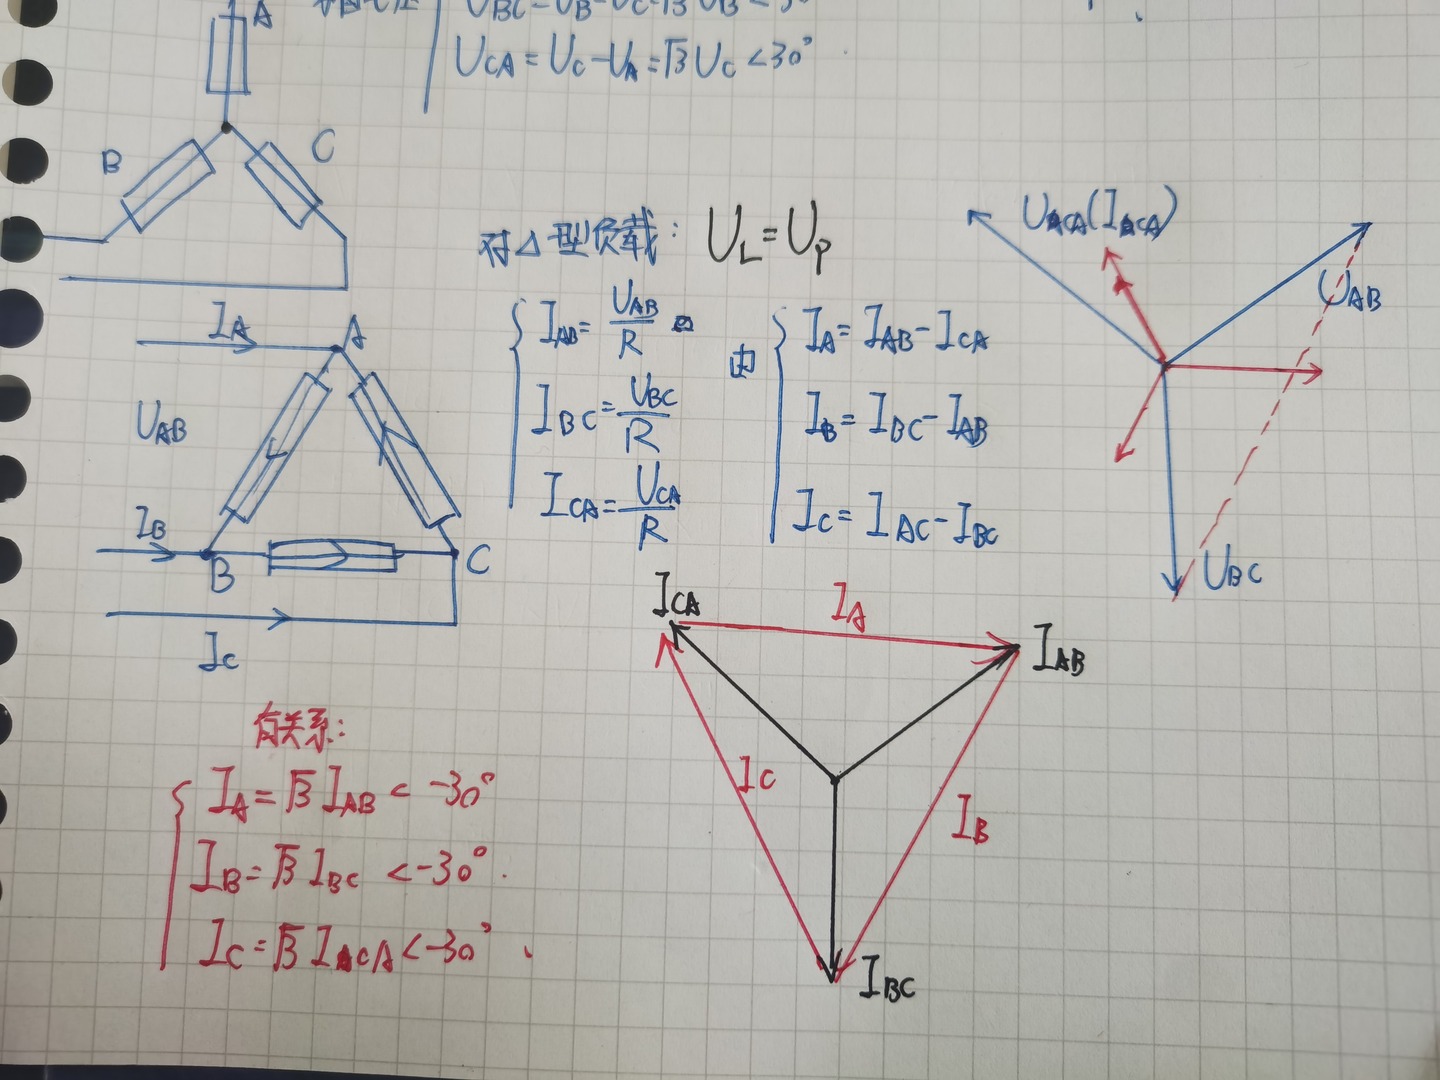 A
U_BC=U_B-U_C=√3 U_B<30°
U_CA=U_C-U_A=√3 U_C<30°
B
C
对△型负载: U_L=U_P
I_AB=U_AB/R
I_BC=U_BC/R
I_CA=U_CA/R
由
I_A=I_AB-I_CA
I_B=I_BC-I_AB
I_C=I_AC-I_BC
U_CA(I_CA)
U_AB
U_BC
I_A
A
U_AB
I_B
B
C
I_C
I_CA
I_A
I_AB
I_C
I_B
I_BC
有关系:
I_A=√3 I_AB<-30°
I_B=√3 I_BC <-30°.
I_C=√3 I_CA<-30°.